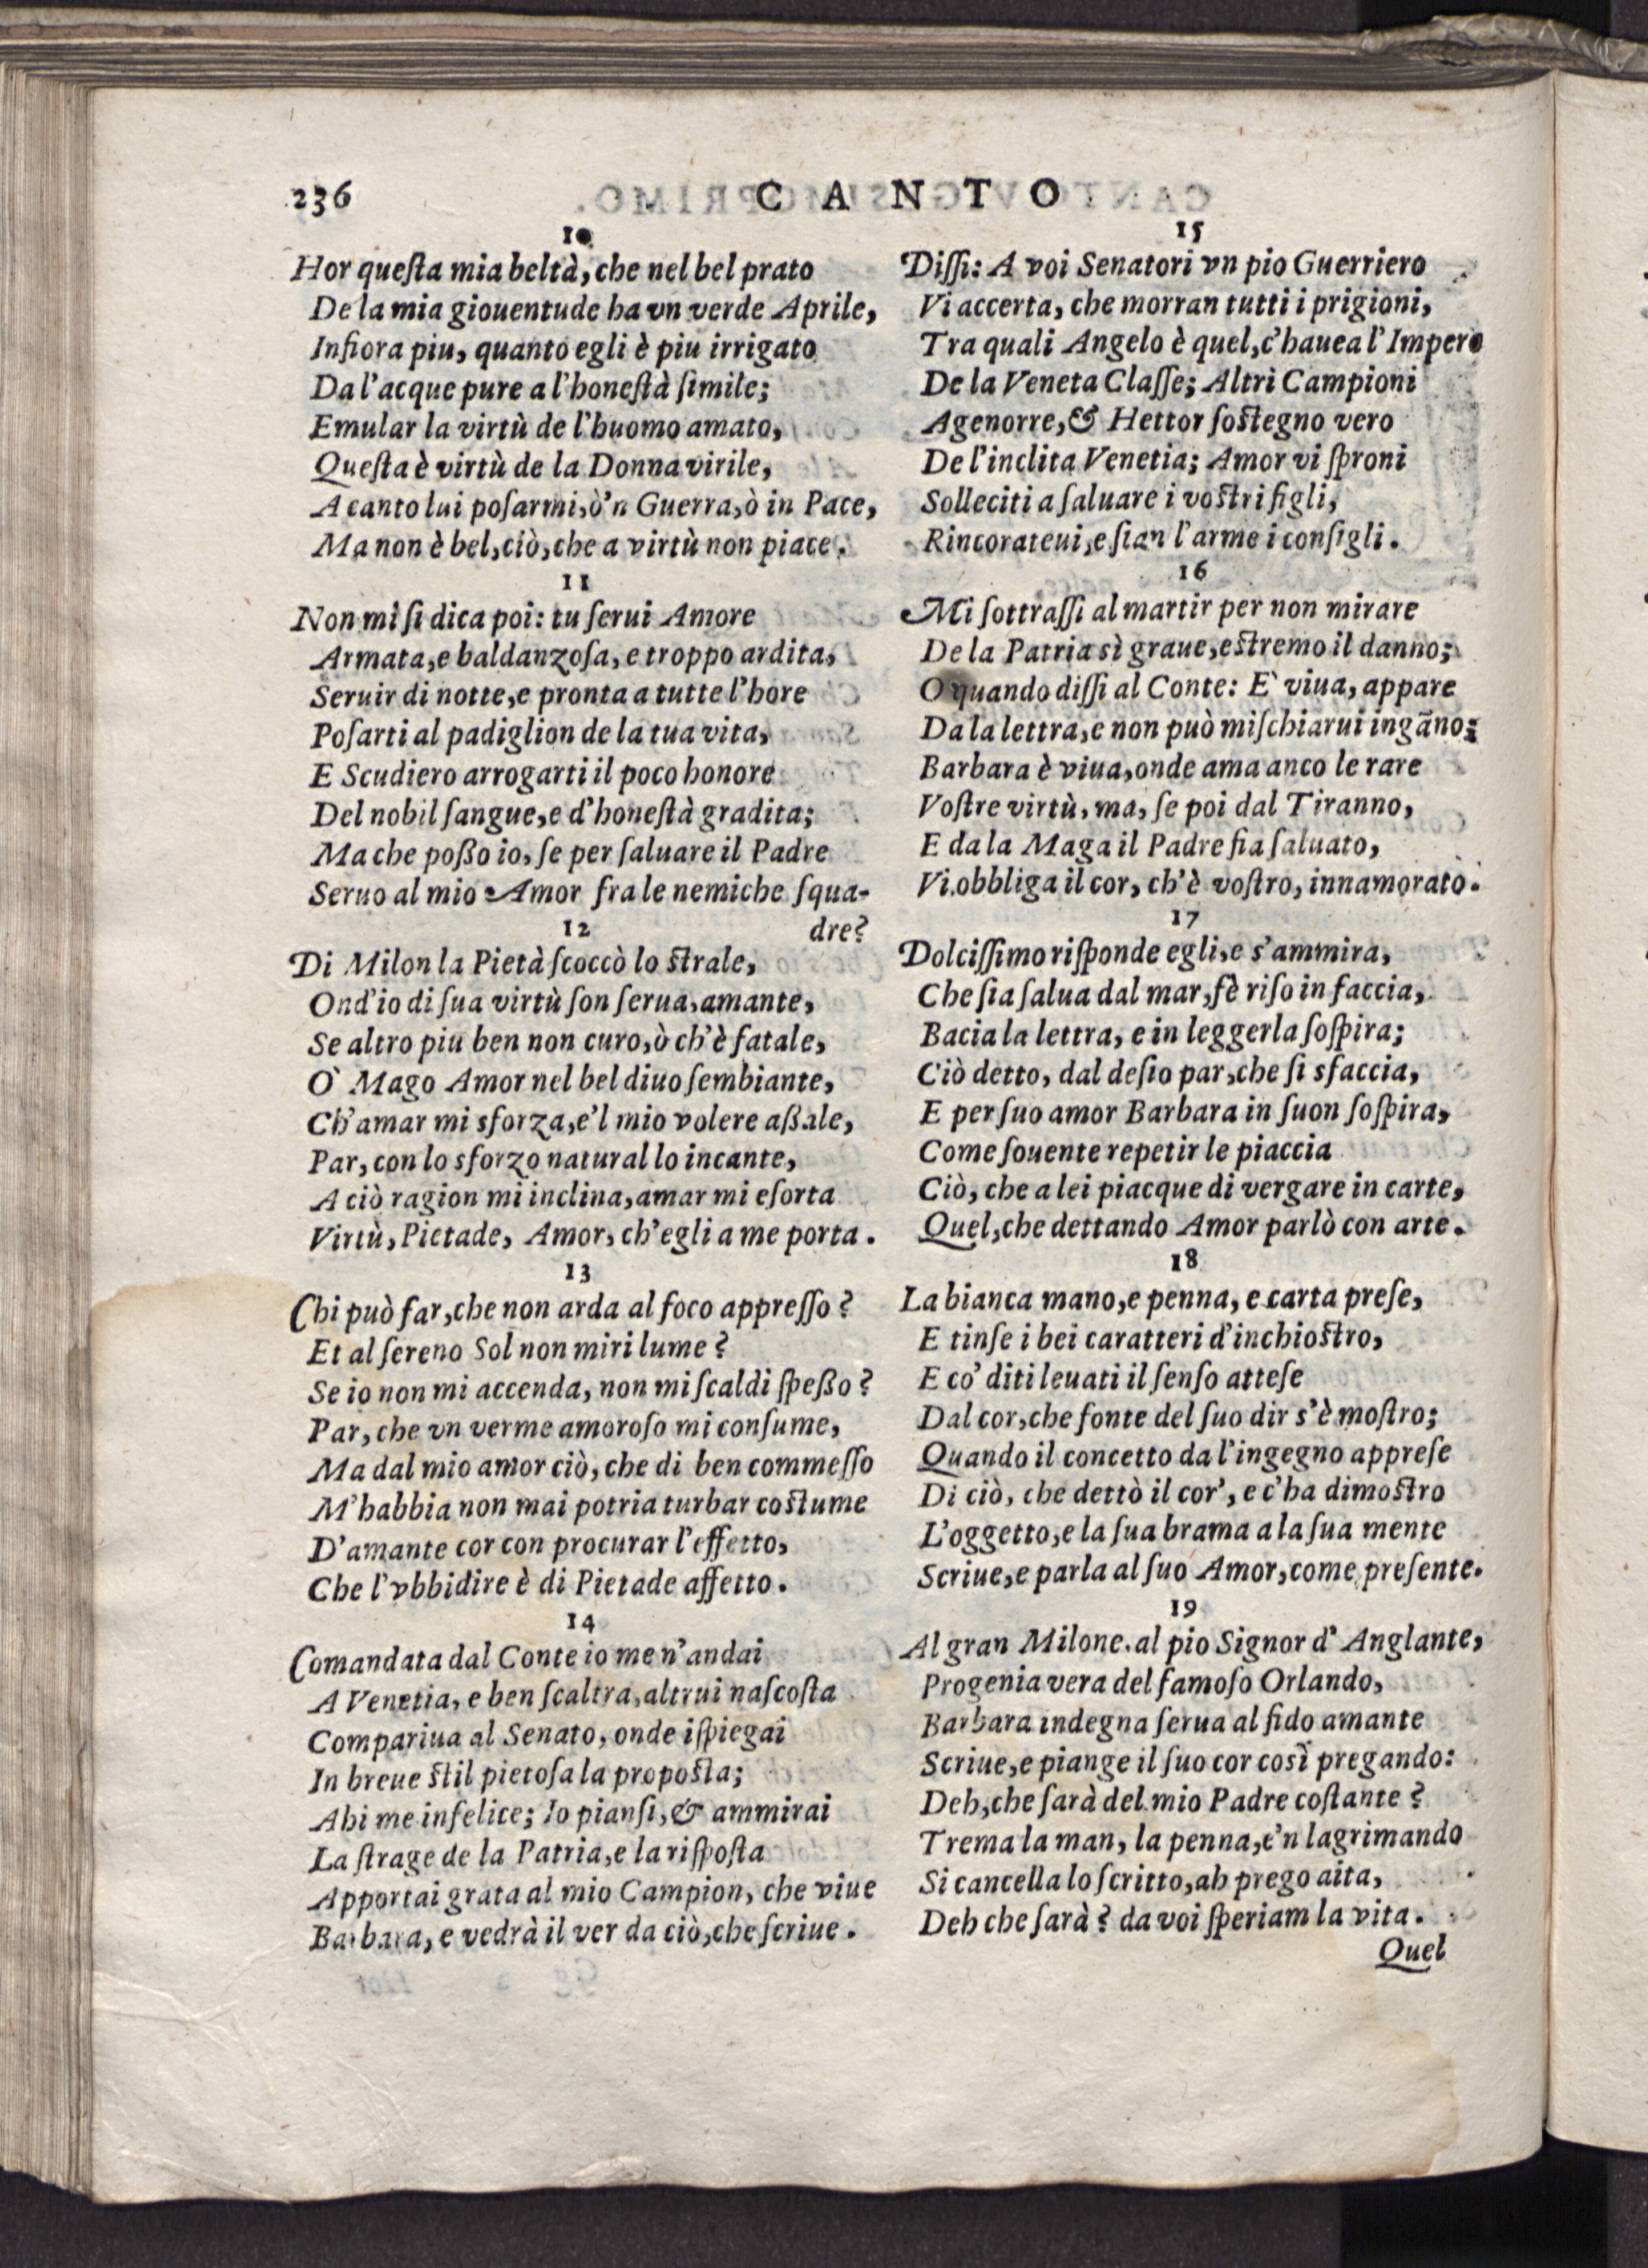 236
CANTO
10
Hor queſta mia beltà, che nel bel prato
De la mia giouentude ha vn verde Aprile,
Infiora piu, quanto egli è piu irrigato
Da l'acque pure a l'honeſtà ſimile;
Emular la virtù de l'huomo amato,
Queſta è virtù de la Donna virile,
A canto lui poſarmi, ò'n Guerra, ò in Pace,
Ma non è bel, ciò, che a virtù non piace.
11
Non mi ſi dica poi: tu ſerui Amore
Armata, e baldanzoſa, e troppo ardita,
Seruir di notte, e pronta a tutte l'hore
Poſarti al padiglion de la tua vita,
E Scudiero arrogarti il poco honore
Del nobil ſangue, e d'honeſtà gradita;
Ma che poßo io, ſe per ſaluare il Padre
Seruo al mio Amor fra le nemiche ſqua-
dre?
12
Di Milon la Pietà ſcoccò lo ſtrale,
Ond'io di ſua virtù ſon ſerua, amante,
Se altro piu ben non curo, ò ch'è fatale,
O' Mago Amor nel bel diuo ſembiante,
Ch'amar mi sforza, e'l mio volere aßale,
Par, con lo sforzo natural lo incante,
A ciò ragion mi inclina, amar mi eſorta
Virtù, Pietade, Amor, ch'egli a me porta.
13
Chi può far, che non arda al foco appreſſo?
Et al ſereno Sol non miri lume?
Se io non mi accenda, non mi ſcaldi ſpeßo?
Par, che vn verme amoroſo mi conſume,
Ma dal mio amor ciò, che di ben commeſſo
M'habbia non mai potria turbar coſtume
D'amante cor con procurar l'effetto,
Che l'vbbidire è di Pietade affetto.
14
Comandata dal Conte io me n'andai
A Venetia, e ben ſcaltra, altrui naſcoſta
Compariua al Senato, onde iſpiegai
In breue ſtil pietoſa la propoſta;
Ahi me infelice; Io pianſi, & ammirai
La ſtrage de la Patria, e la riſpoſta
Apportai grata al mio Campion, che viue
Barbara, e vedrà il ver da ciò, che ſcriue.
15
Diſſi: A voi Senatori vn pio Guerriero
Vi accerta, che morran tutti i prigioni,
Tra quali Angelo è quel, c'hauea l'Impero
De la Veneta Claſſe; Altri Campioni
Agenorre, & Hettor ſoſtegno vero
De l'inclita Venetia; Amor vi ſproni
Solleciti a ſaluare i voſtri figli,
Rincorateui, e ſian l'arme i conſigli.
16
Mi ſottraſſi al martir per non mirare
De la Patria sì graue, eſtremo il danno;
O quando diſſi al Conte: E' viua, appare
Da la lettra, e non può miſchiarui ingāno;
Barbara è viua, onde ama anco le rare
Voſtre virtù, ma, ſe poi dal Tiranno,
E da la Maga il Padre fia ſaluato,
Vi obbliga il cor, ch'è voſtro, innamorato.
17
Dolciſſimo riſponde egli, e s'ammira,
Che ſia ſalua dal mar, fè riſo in faccia,
Bacia la lettra, e in leggerla ſoſpira;
Ciò detto, dal deſio par, che ſi sfaccia,
E per ſuo amor Barbara in ſuon ſoſpira,
Come ſouente repetir le piaccia
Ciò, che a lei piacque di vergare in carte,
Quel, che dettando Amor parlò con arte.
18
La bianca mano, e penna, e carta preſe,
E tinſe i bei caratteri d'inchioſtro,
E co' diti leuati il ſenſo atteſe
Dal cor, che fonte del ſuo dir s'è moſtro;
Quando il concetto da l'ingegno appreſe
Di ciò, che dettò il cor', e c'ha dimoſtro
L'oggetto, e la ſua brama a la ſua mente
Scriue, e parla al ſuo Amor, come preſente.
19
Al gran Milone. al pio Signor d'Anglante,
Progenia vera del famoſo Orlando,
Barbara indegna ſerua al fido amante
Scriue, e piange il ſuo cor così pregando:
Deh, che ſarà del mio Padre coſtante?
Trema la man, la penna, e'n lagrimando
Si cancella lo ſcritto, ah prego aita,
Deh che ſarà? da voi ſperiam la vita.
Quel